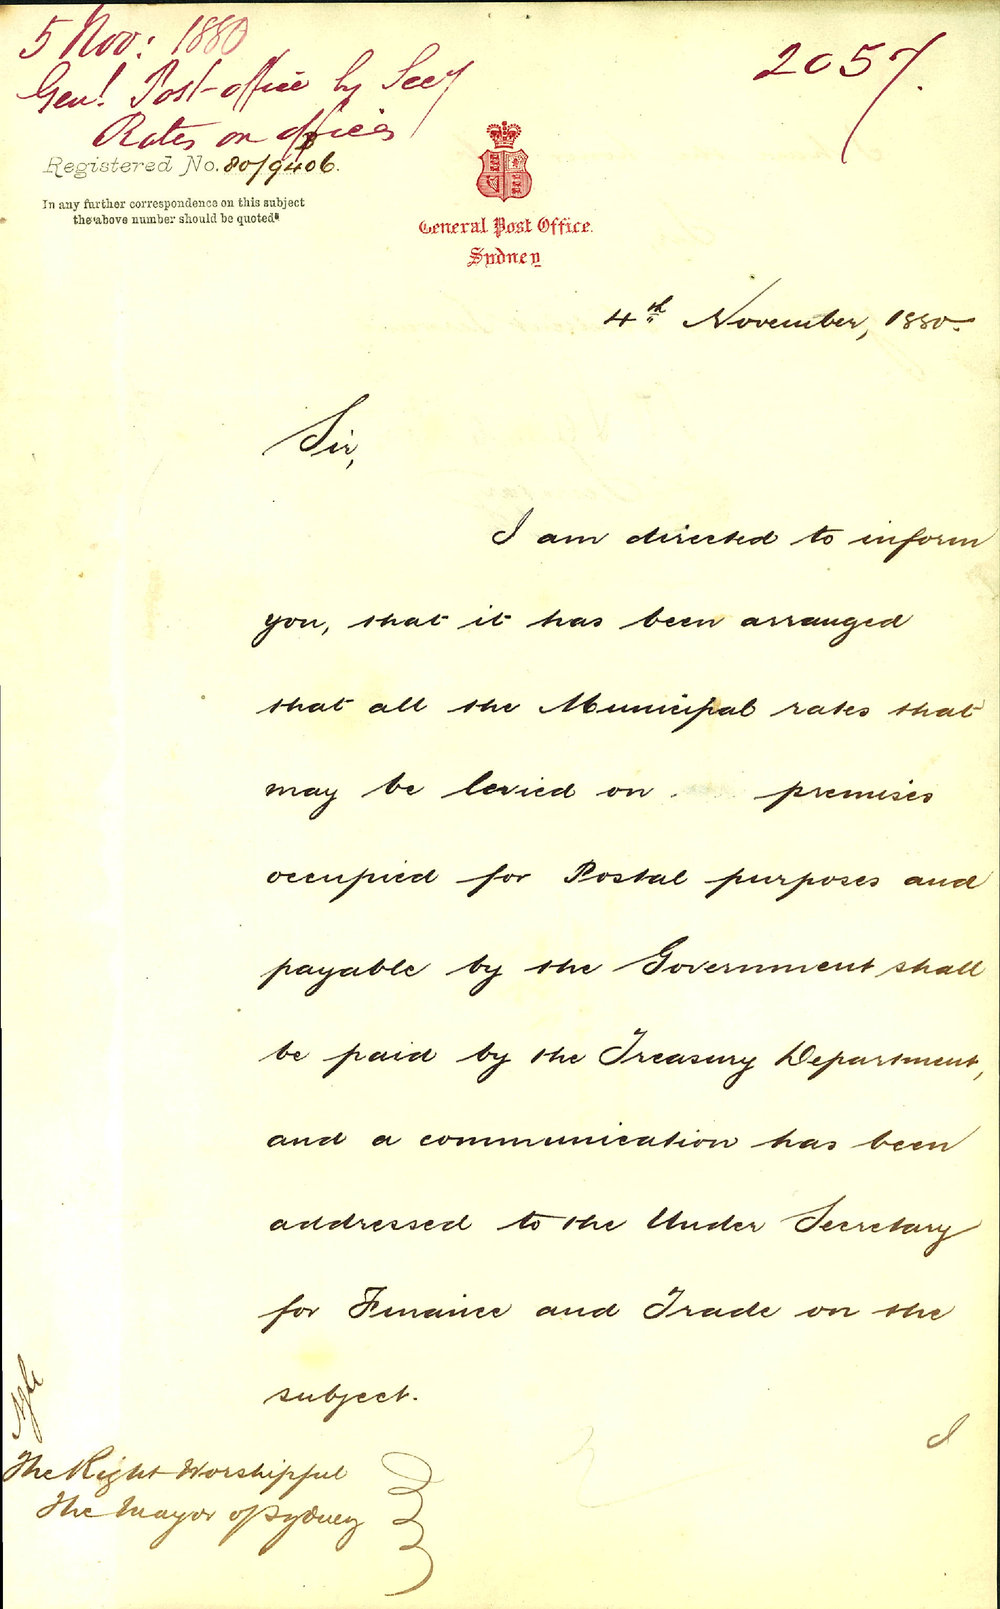 5 Nov: 1880
2057.
Genl. Post-office by Secy
Rates on offices
Registered No. 80/9406.
In any further correspondence on this subject
the above number should be quoted
General Post Office.
Sydney
4th November, 1880.
Sir,
I am directed to inform
you, that it has been arranged
that all the Municipal rates that
may be levied on premises
occupied for Postal purposes and
payable by the Government shall
be paid by the Treasury Department,
and a communication has been
addressed to the Under Secretary
for Finance and Trade on the
subject.
I
The Right Worshipful
The Mayor of Sydney